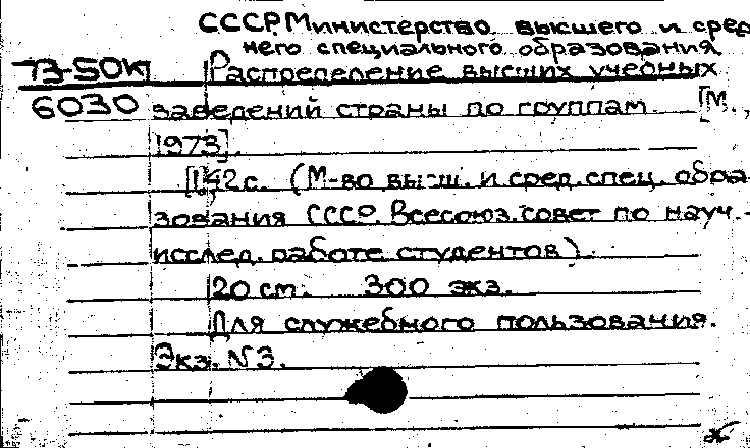 СССР. Министерство высшего и сред
него специального образования
73-50к Распределение высших учебных
6030 заведений страны по группам. [М.,
1973].
42 с. (М-во высш. и сред. спец. обра-
зования СССР. Всесоюз. совет по науч.-
исслед. работе студентов).
20 см. 300 экз.
Для служебного пользования.
Экз. №3.